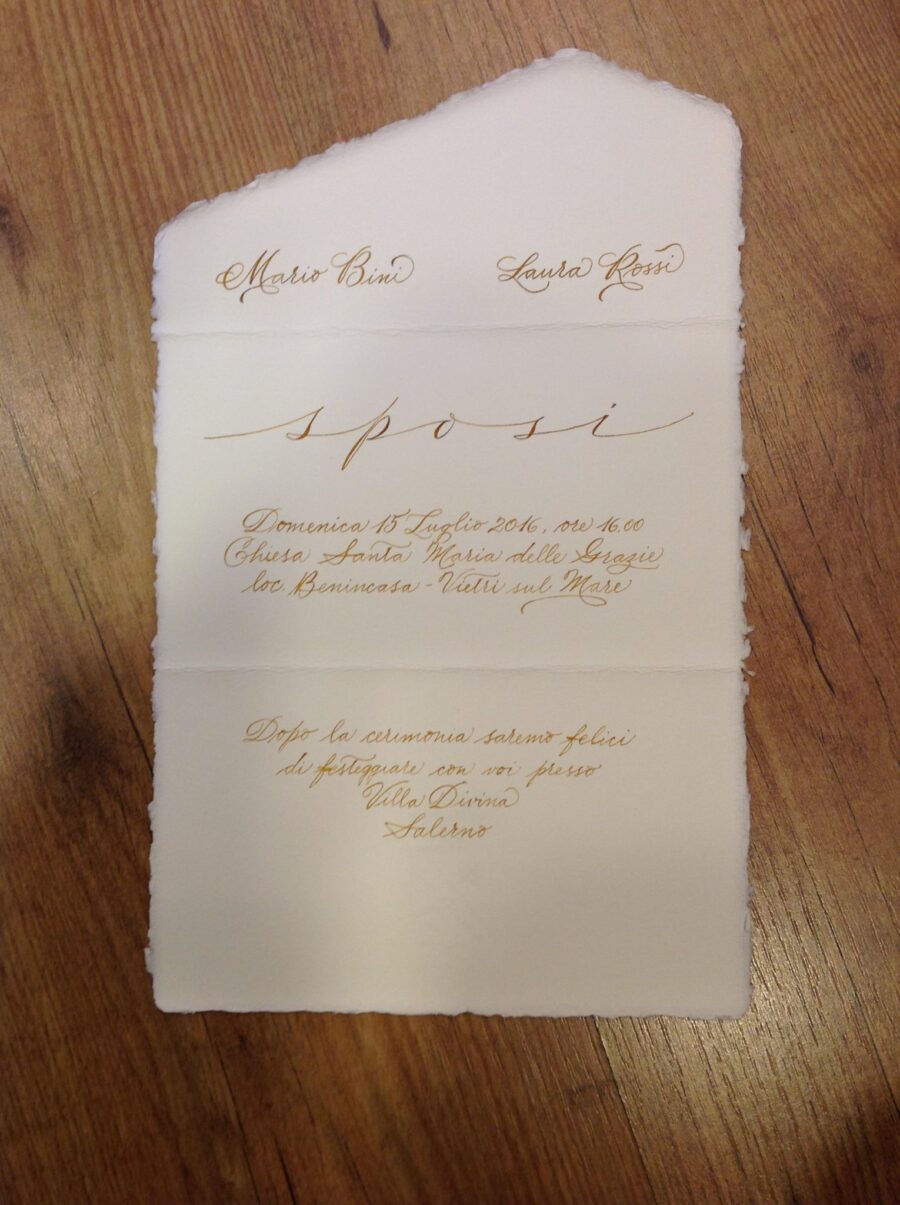 Mario Bini Laura Rossi
sposi
Domenica 15 Luglio 2016, ore 16,00
Chiesa Santa Maria delle Grazie
loc. Benincasa - Vietri sul Mare
Dopo la cerimonia saremo felici
di festeggiare con voi presso
Villa Divina
Salerno